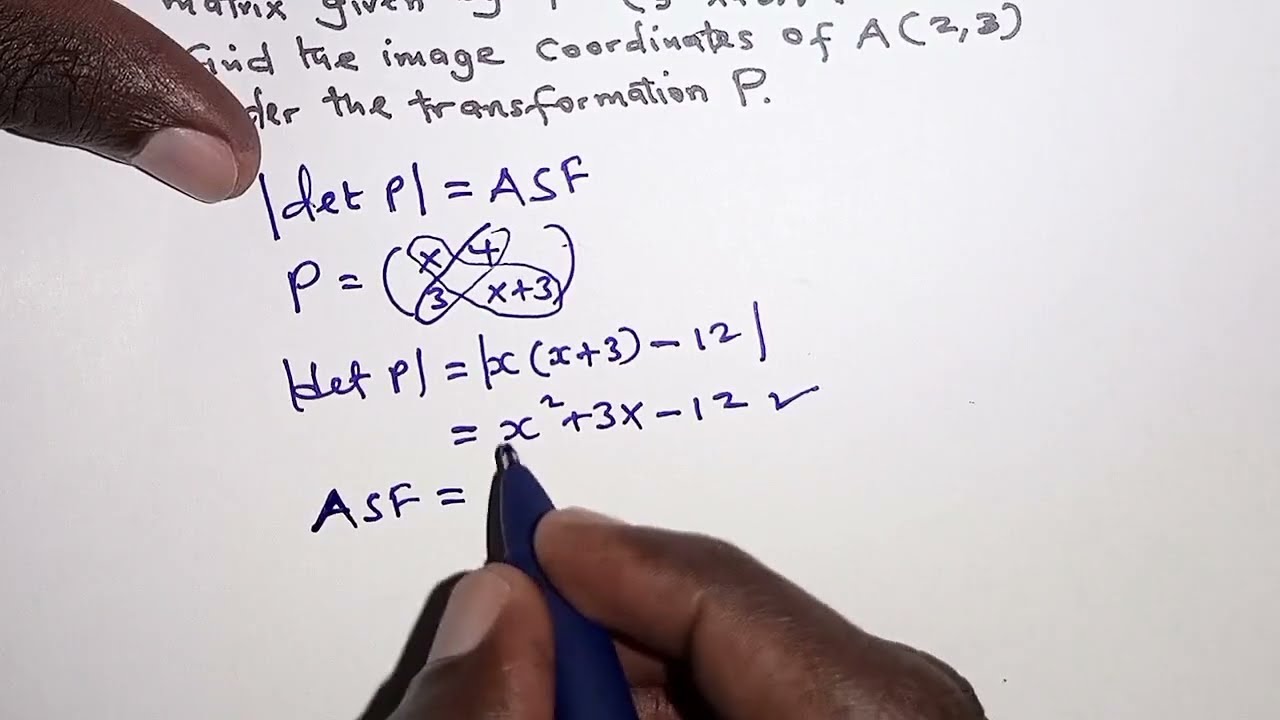 matrix given by P
find the image coordinates of A(2,3)
the transformation P.
|det P| = ASF
P = (x 4
3 x+3)
|det P| = |x(x+3) - 12|
= x² + 3x - 12 ✓
ASF =